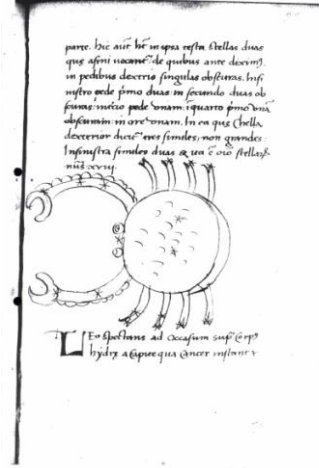 parte. hic aut hr in ipsa testa stellas duas
que asini vocant de quibus ante dixim9
in pedibus dextris singulas obscuras. Insi
nistro pede pmo duas in secundo duas ob
scuras in tercio pede vnam, i quarto pmo vnā
obscuram in ore vnam. In ea que Chella
dexterior dicit tres similes, non grandes
In sinistra similes duas
nu9 xviij.
LEo spectans ad Occasum sup Corp9
hydrę a capite qua Cancer instant